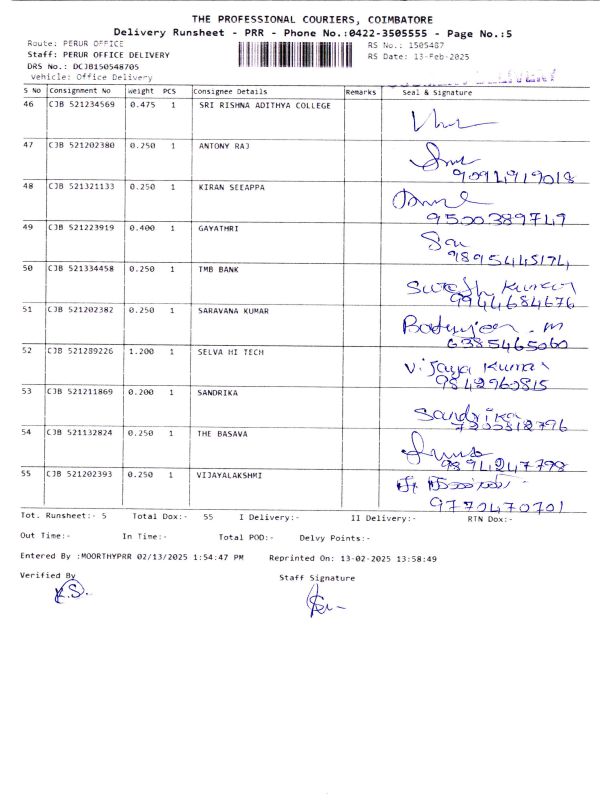 THE PROFESSIONAL COURIERS, COIMBATORE
Delivery Runsheet - PRR - Phone No.:0422-3505555 - Page No.:5
Route: PERUR OFFICE
RS No.: 1505487
Staff: PERUR OFFICE DELIVERY
RS Date: 13-Feb-2025
DRS No.: DCJB150548705
Vehicle: Office Delivery
DELIVERY
S No Consignment No Weight PCS Consignee Details Remarks Seal & Signature
46 CJB 521234569 0.475 1 SRI RISHNA ADITHYA COLLEGE
47 CJB 521202380 0.250 1 ANTONY RAJ
9094919018
48 CJB 521321133 0.250 1 KIRAN SEEAPPA
9500389749
49 CJB 521223919 0.400 1 GAYATHRI
50 CJB 521334458 0.250 1 TMB BANK
Suresh Kumar
9944684676
51 CJB 521202382 0.250 1 SARAVANA KUMAR
6385465060
52 CJB 521289226 1.200 1 SELVA HI TECH
Vijaya Kumar
9842960815
53 CJB 521211869 0.200 1 SANDRIKA
Sandrika
54 CJB 521132824 0.250 1 THE BASAVA
9894247798
55 CJB 521202393 0.250 1 VIJAYALAKSHMI
9770470701
Tot. Runsheet:- 5 Total Dox:- 55 I Delivery:- II Delivery:- RTN Dox:-
Out Time:- In Time:- Total POD:- Delvy Points:-
Entered By :MOORTHYPRR 02/13/2025 1:54:47 PM Reprinted On: 13-02-2025 13:58:49
Verified By
Staff Signature
K.S.